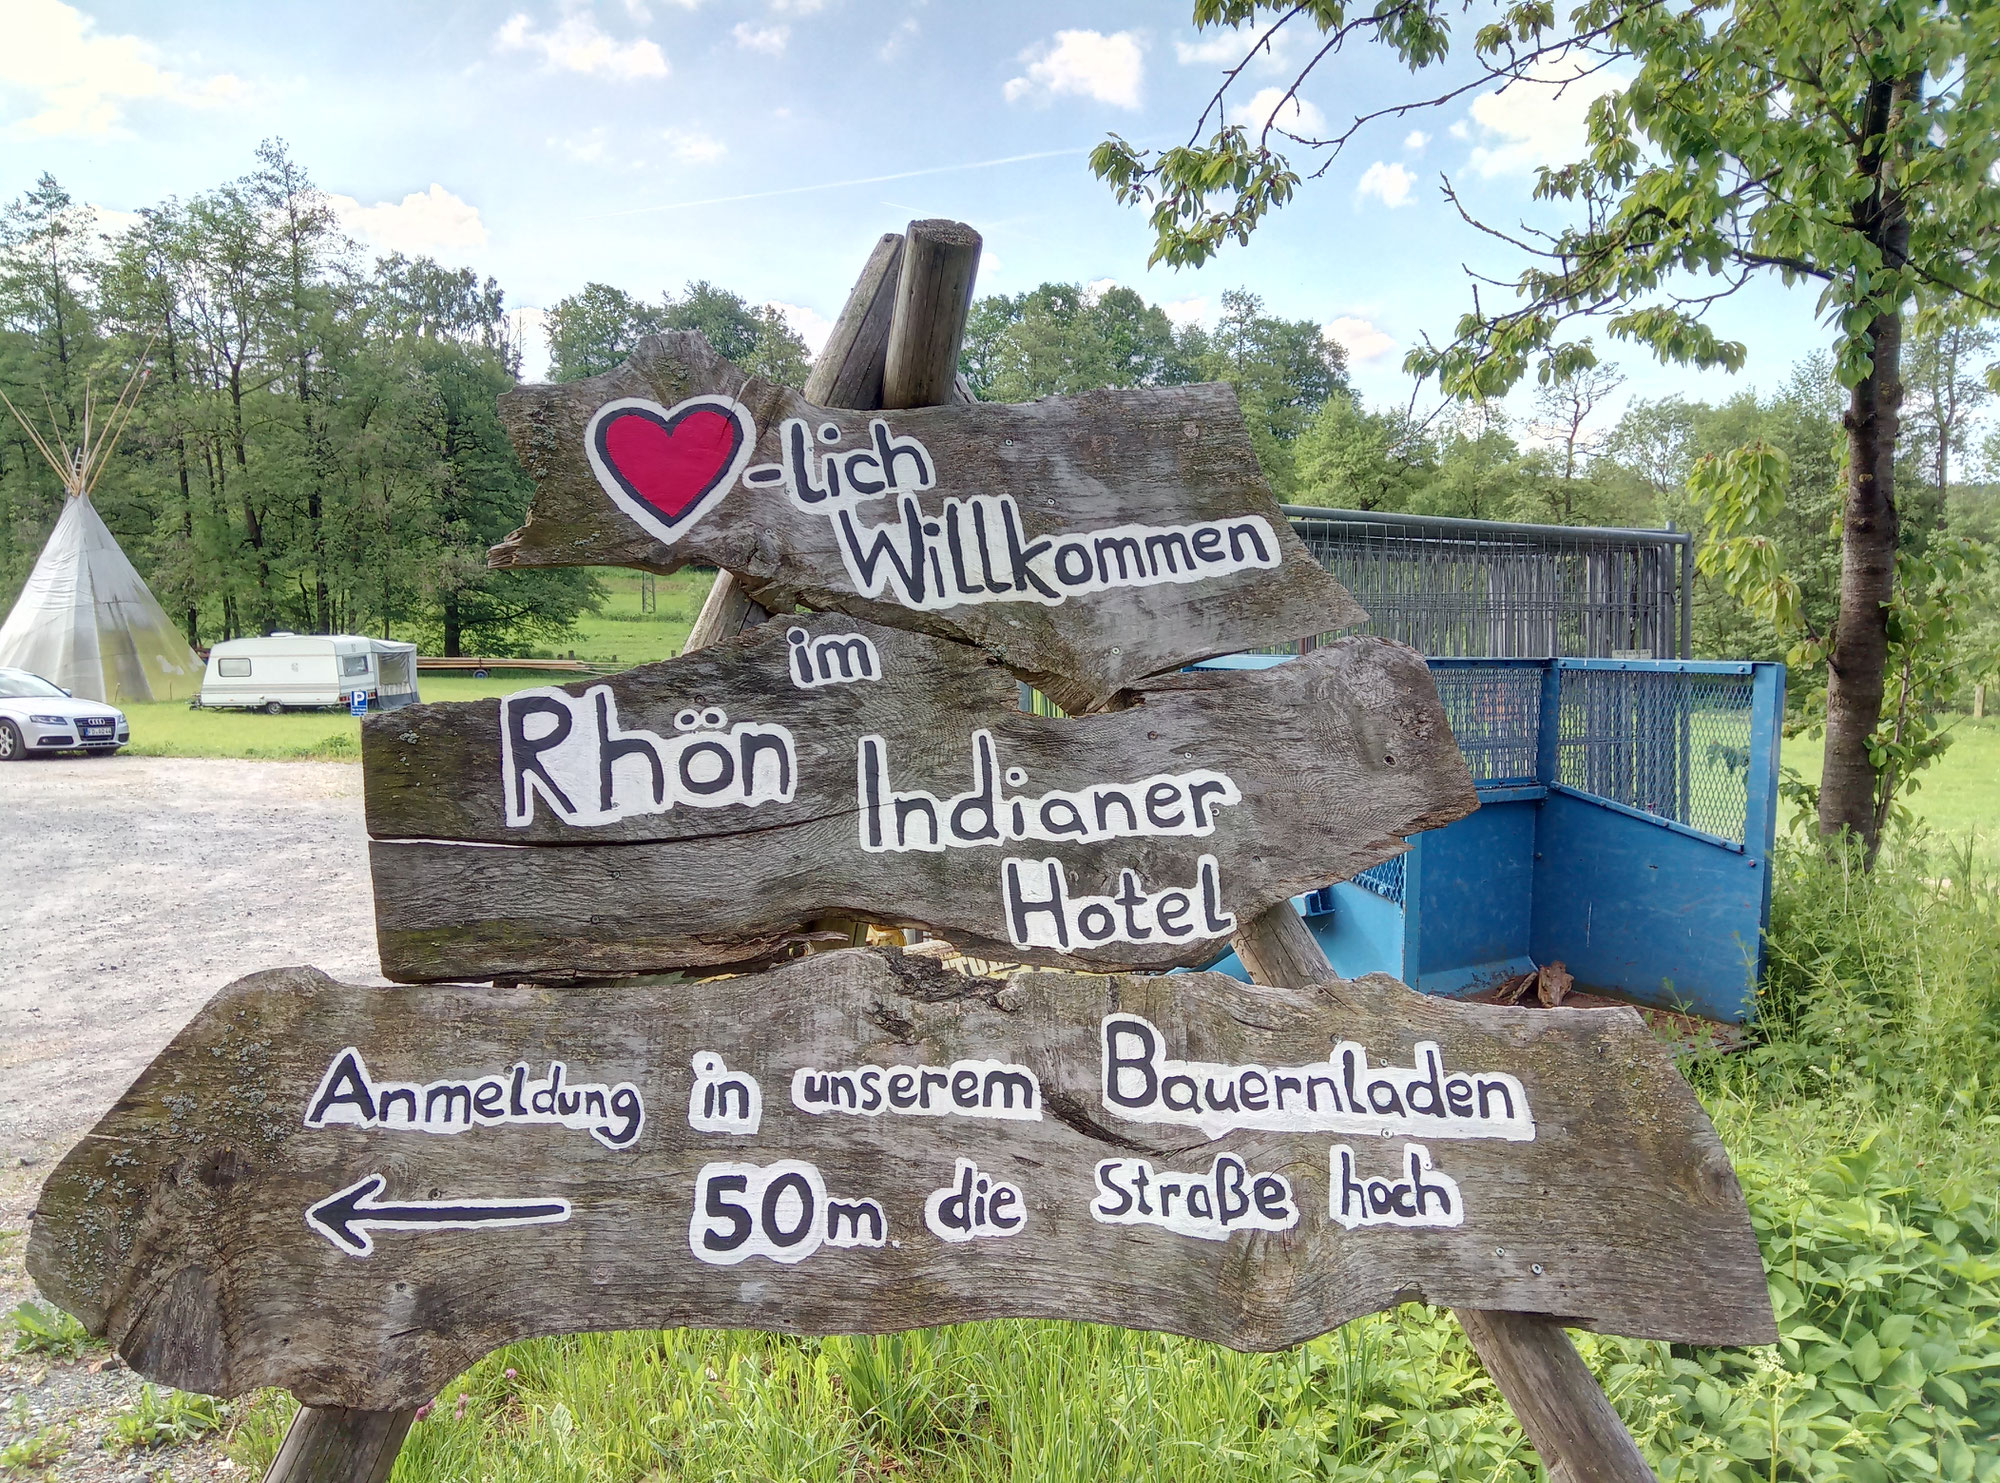 -lich
Willkommen
im
Rhön
Indianer
Hotel
Anmeldung in unserem Bauernladen
50m die Straße hoch
P